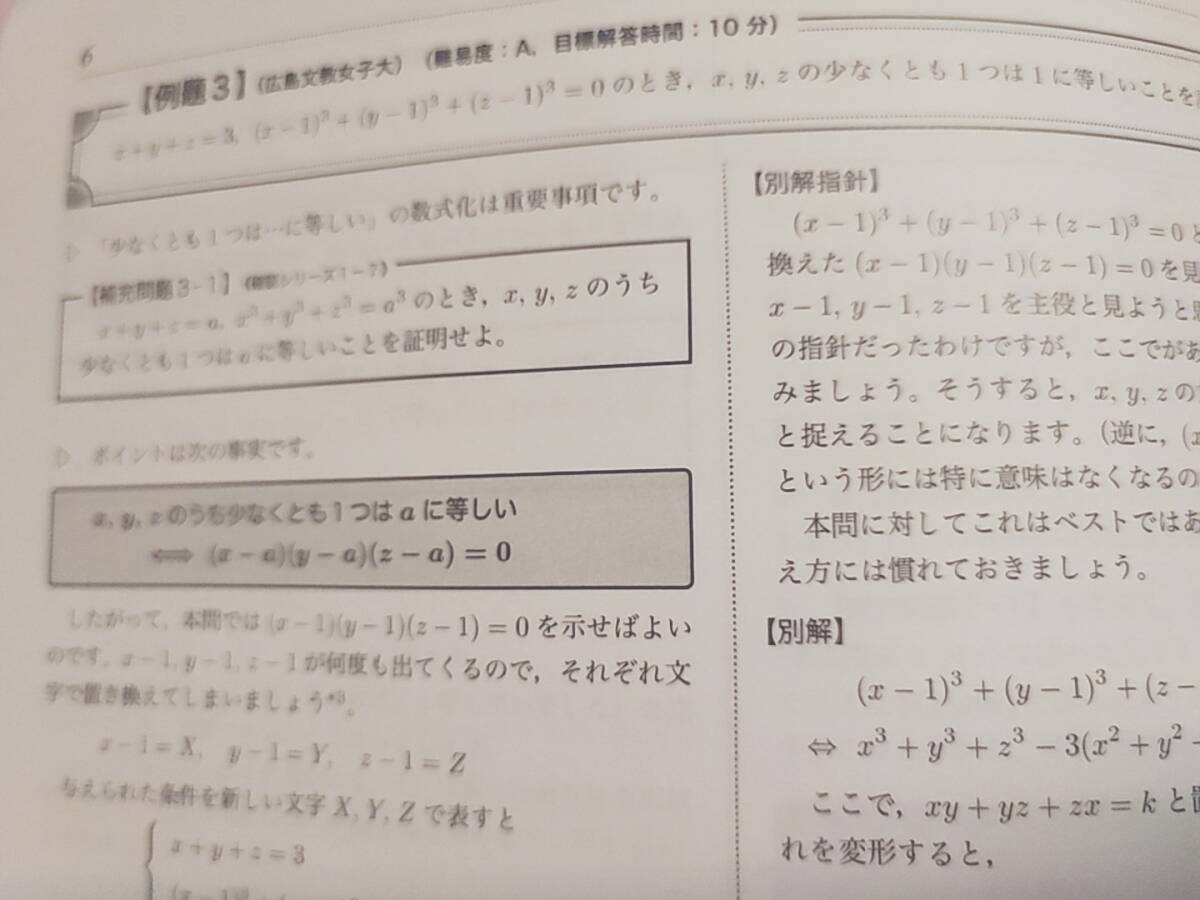 6
【例題3】(広島文教女子大) (難易度:A, 目標解答時間:10分)
x+y+z=3, (x−1)³+(y−1)³+(z−1)³=0のとき, x, y, zの少なくとも1つは1に等しいことを
▷ 「少なくとも1つは…に等しい」の数式化は重要事項です。
【補充問題3-1】
x+y+z=a, x³+y³+z³=a³のとき, x, y, zのうち
少なくとも1つはaに等しいことを証明せよ。
▷ ポイントは次の事実です。
x, y, zのうち少なくとも1つはaに等しい
⟺ (x−a)(y−a)(z−a)=0
したがって, 本問では(x−1)(y−1)(z−1)=0を示せばよい
のです。x−1, y−1, z−1が何度も出てくるので, それぞれ文
字で置き換えてしまいましょう*3。
x−1=X, y−1=Y, z−1=Z
与えられた条件を新しい文字X, Y, Zで表すと
x+y+z=3
【別解指針】
(x−1)³+(y−1)³+(z−1)³=0と
換えた(x−1)(y−1)(z−1)=0を見
x−1, y−1, z−1を主役と見ようと
の指針だったわけですが, ここであ
みましょう。そうすると, x, y, zの
と捉えることになります。(逆に, (x
という形には特に意味はなくなるの
本問に対してこれはベストではあ
え方には慣れておきましょう。
【別解】
(x−1)³+(y−1)³+(z−
⇔ x³+y³+z³−3(x²+y²
ここで, xy+yz+zx=kと置
れを変形すると,